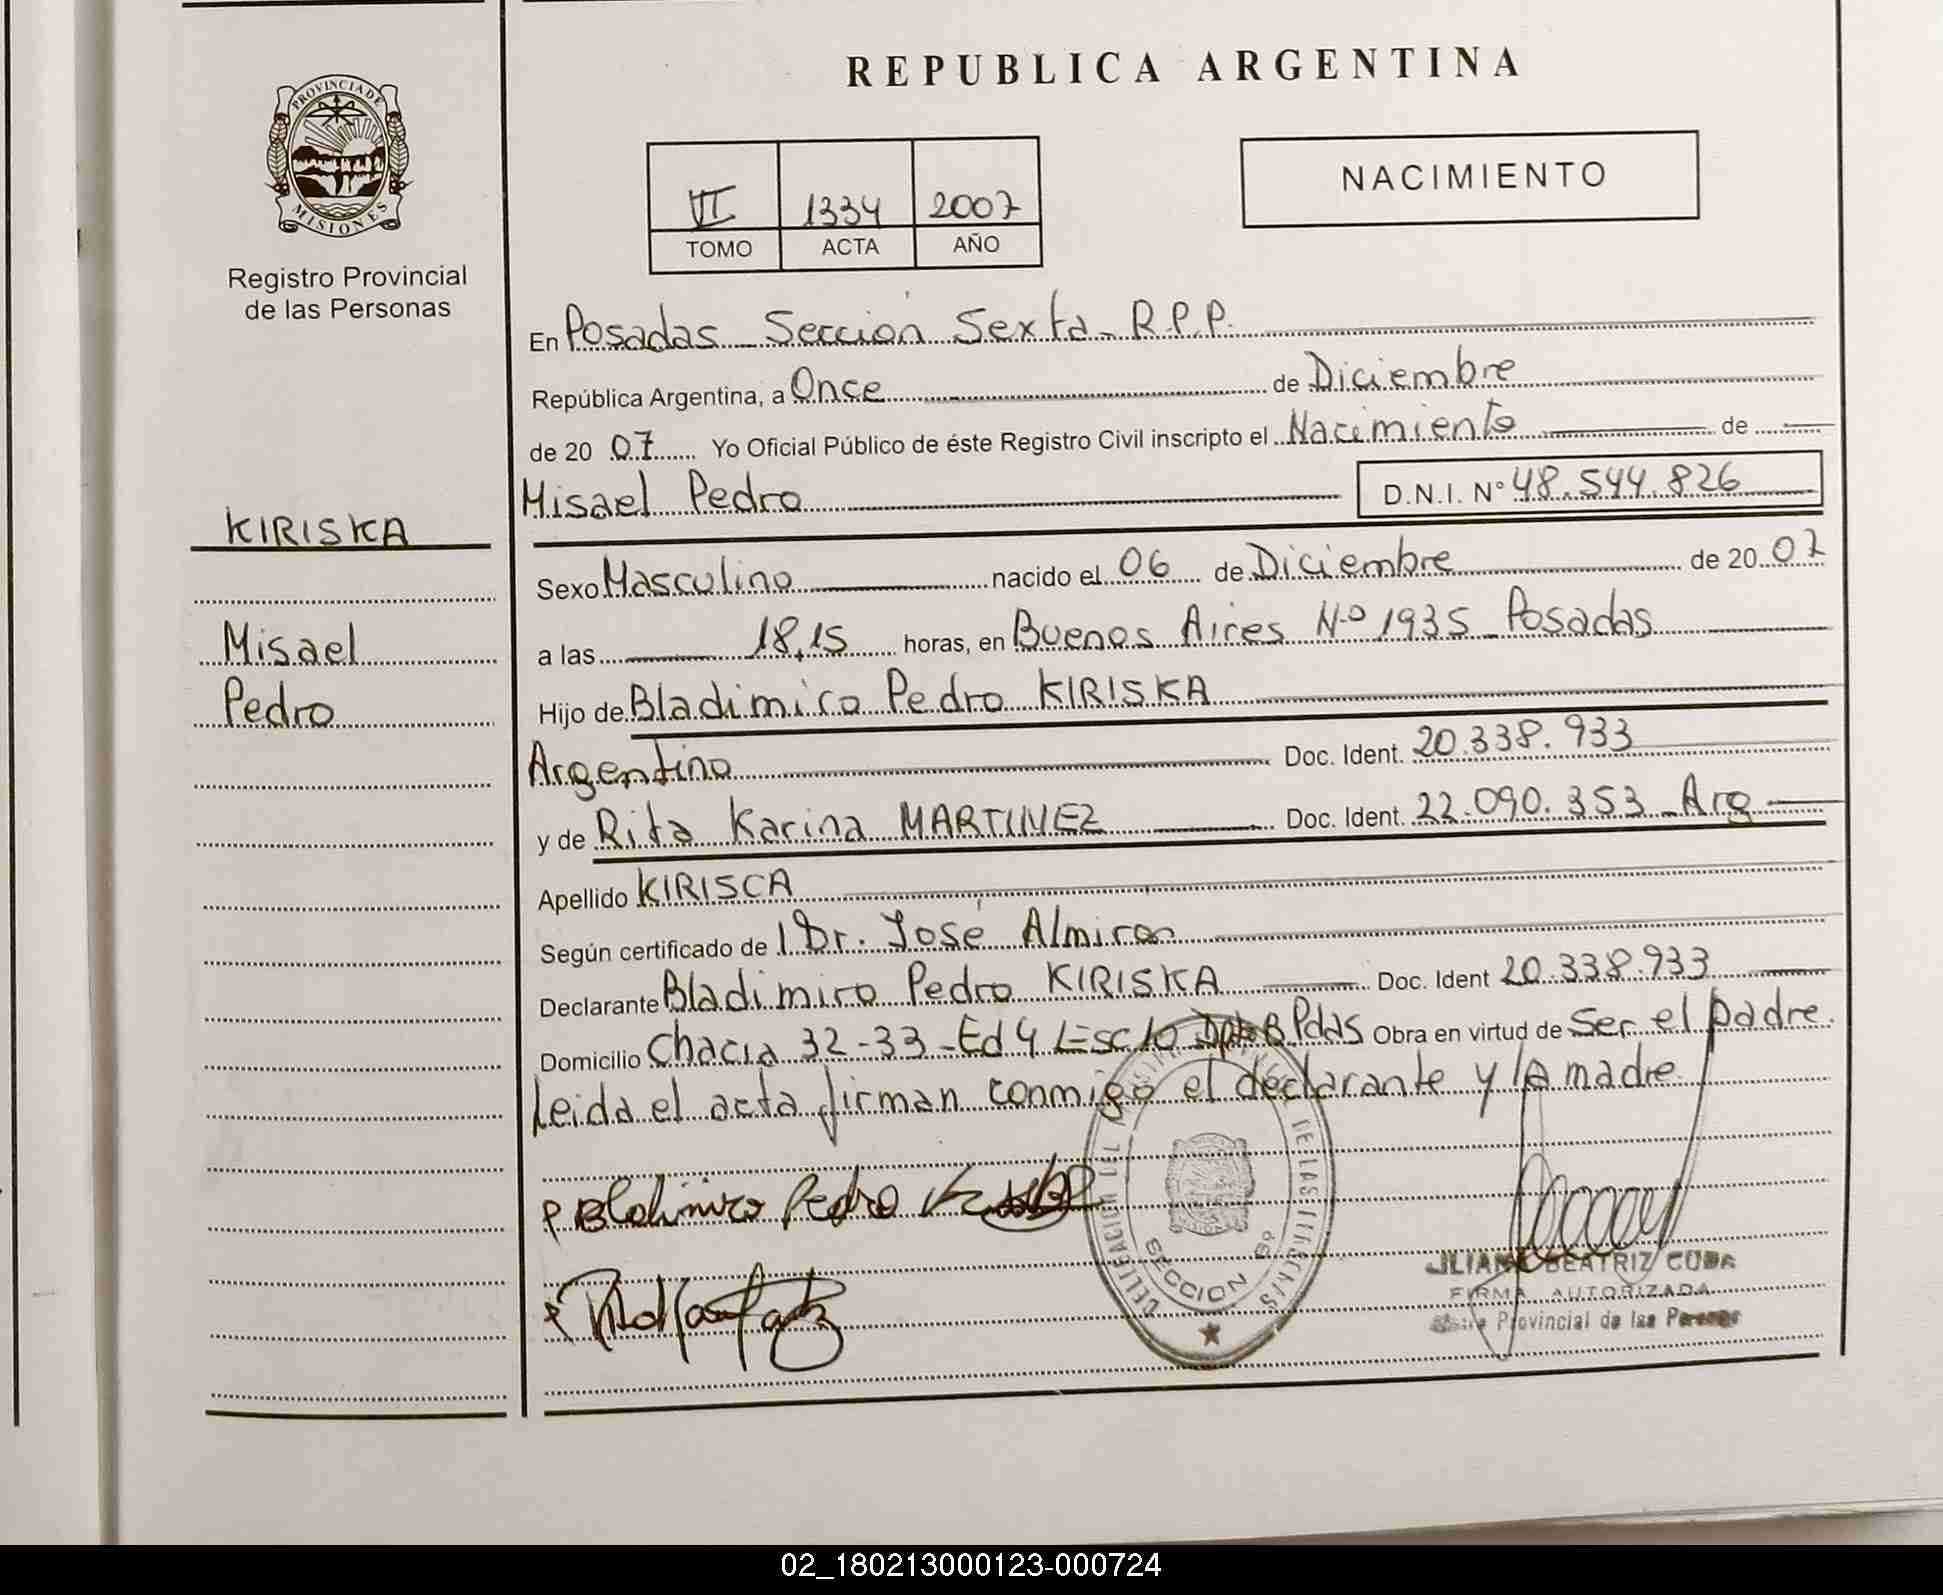 REPUBLICA ARGENTINA
PROVINCIA DE
MISIONES
Registro Provincial
de las Personas
VI 1334 2007
TOMO ACTA AÑO
NACIMIENTO
En Posadas _ Sección Sexta _ R.P.P.
República Argentina, a Once de Diciembre
de 20 07 Yo Oficial Público de éste Registro Civil inscripto el Nacimiento de
Misael Pedro D.N.I. N° 48.544.826
KIRISKA
Misael
Pedro
Sexo Masculino nacido el 06 de Diciembre de 20 07
a las 18,15 horas, en Buenos Aires N-o 1935 _ Posadas
Hijo de Bladimiro Pedro KIRISKA
Argentino Doc. Ident. 20.338.933
y de Rita Karina MARTINEZ Doc. Ident. 22.090.353 _ Arg
Apellido KIRISCA
Según certificado de Dr. José Almiron
Declarante Bladimiro Pedro KIRISKA Doc. Ident 20.338.933
Domicilio Chacra 32-33 - Ed 4 Esc 10 B Pdas Obra en virtud de Ser el padre.
Leida el acta firman conmigo el declarante y la madre
Pedro
SECCION 6º
BEATRIZ
FIRMA AUTORIZADA
Provincial de las
02_180213000123-000724